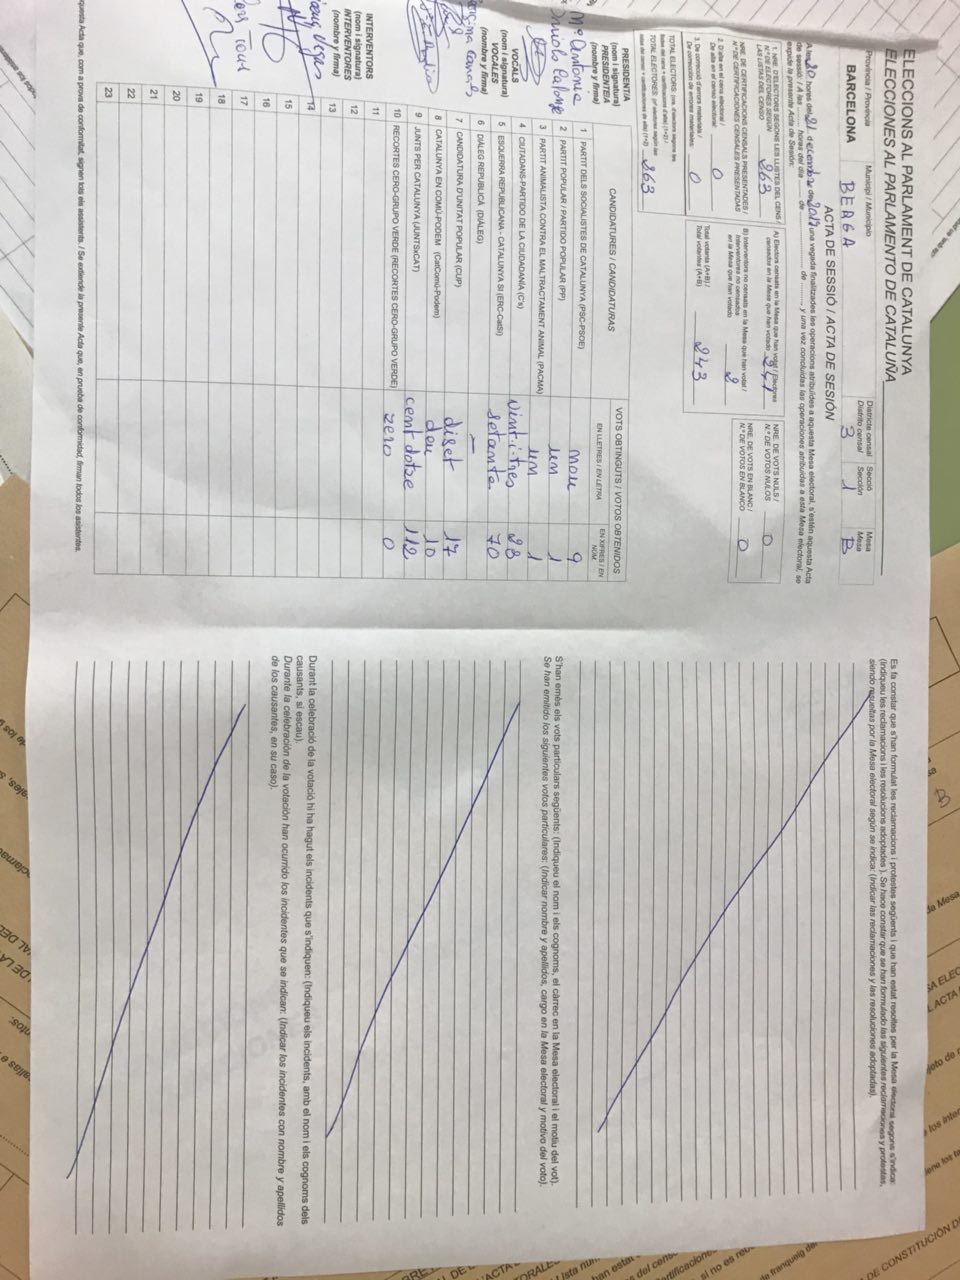 ELECCIONS AL PARLAMENT DE CATALUNYA
ELECCIONES AL PARLAMENTO DE CATALUÑA
ACTA DE SESSIÓ / ACTA DE SESIÓN
Província / Provincia
BARCELONA
Municipi / Municipio
BERGA
Districte censal
Distrito censal
3
Secció
Sección
1
Mesa
Mesa
B
A les 20 hores del 21 de desembre de 2017 una vegada finalitzades les operacions atribuïdes a aquesta Mesa electoral, s'estén aquesta Acta
de sessió / A las ........ horas del día ........ de ........ de ........, y una vez concluidas las operaciones atribuidas a esta Mesa electoral, se
expide la presente Acta de Sesión:
1. NRE. D'ELECTORS SEGONS LES LLISTES DEL CENS /
N.º DE ELECTORES SEGÚN
LAS LISTAS DEL CENSO
363
NRE. DE CERTIFICACIONS CENSALS PRESENTADES /
N.º DE CERTIFICACIONES CENSALES PRESENTADAS
2. D'alta en el cens electoral /
De alta en el censo electoral:
0
3. De correcció d'errors materials /
De corrección de errores materiales:
0
363
A) Electors censats en la Mesa que han votat / Electores
censados en la Mesa que han votado
241
B) Interventors no censats en la Mesa que han votat /
Interventores no censados
en la Mesa que han votado
2
Total votants (A+B) /
Total votantes (A+B)
243
NRE. DE VOTS NULS /
N.º DE VOTOS NULOS
0
NRE. DE VOTS EN BLANC /
N.º DE VOTOS EN BLANCO
0
CANDIDATURES / CANDIDATURAS
VOTS OBTINGUTS / VOTOS OBTENIDOS
EN LLETRES / EN LETRA
EN XIFRES / EN NÚM.
1 PARTIT DELS SOCIALISTES DE CATALUNYA (PSC-PSOE) nou 9
2 PARTIT POPULAR / PARTIDO POPULAR (PP) un 1
3 PARTIT ANIMALISTA CONTRA EL MALTRACTAMENT ANIMAL (PACMA) un 1
4 CIUTADANS-PARTIDO DE LA CIUDADANÍA (C's) vint-i-tres 23
5 ESQUERRA REPUBLICANA - CATALUNYA SÍ (ERC-CatSí) setanta 70
6 DIÀLEG REPUBLICÀ (DIÀLEG) —
7 CANDIDATURA D'UNITAT POPULAR (CUP) diset 17
8 CATALUNYA EN COMÚ-PODEM (CatComú-Podem) deu 10
9 JUNTS PER CATALUNYA (JUNTSxCAT) cent dotze 112
10 RECORTES CERO-GRUPO VERDE (RECORTES CERO-GRUPO VERDE) zero 0
11
12
13
14
15
16
17
18
19
20
21
22
23
PRESIDENT/A
(nom i signatura)
PRESIDENTE/A
(nombre y firma)
Mª Antonia
VOCALS
(nom i signatura)
VOCALES
(nombre y firma)
INTERVENTORS
(nom i signatura)
INTERVENTORES
(nombre y firma)
questa Acta que, com a prova de conformitat, signen tots els assistents. / Se extiende la presente Acta que, en prueba de conformidad, firman todos los asistentes.
Es fa constar que s'han formulat les reclamacions i protestes següents i que han estat resoltes per la Mesa electoral segons s'indica:
(Indiqueu les reclamacions i les resolucions adoptades). Se hace constar que se han formulado las siguientes reclamaciones y protestas,
siendo resueltas por la Mesa electoral según se indica: (Indicar las reclamaciones y las resoluciones adoptadas).
S'han emès els vots particulars següents: (Indiqueu el nom i els cognoms, el càrrec en la Mesa electoral i el motiu del vot).
Se han emitido los siguientes votos particulares: (Indicar nombre y apellidos, cargo en la Mesa electoral y motivo del voto).
Durant la celebració de la votació hi ha hagut els incidents que s'indiquen: (Indiqueu els incidents, amb el nom i els cognoms dels
causants, si escau).
Durante la celebración de la votación han ocurrido los incidentes que se indican: (Indicar los incidentes con nombre y apellidos
de los causantes, en su caso).